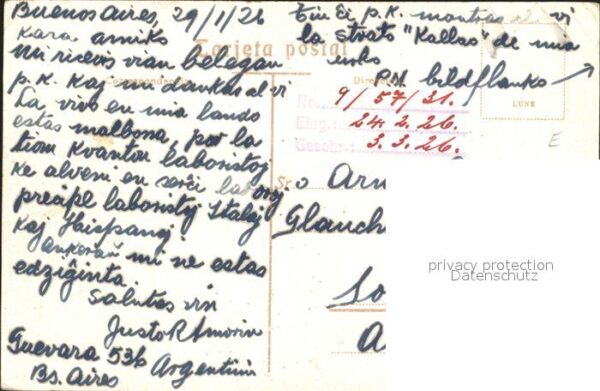 Buenos Aires, 29/1/26
Kara amiko
Mi ricevis vian belegan
p.k. kaj mi dankas al vi
La vivo en mia lando
estas malbona, por la
tiom kvantoy laboristoj
ke alveni en serĉi laboroj
precipe laboristoj Italoj
kaj Hispanoj.
Ankoraŭ mi ne estas
edziĝinta
Salutas vin
Justo R Amorin
Guevara 536 Argentinio
Bs. Aires
Tiu ĉi p.k. montras al vi
la strato "Kallao" de mia
urbo
bildflanko
Tarjeta postal
Correspondencia
No.
9/57/31.
Eing.:
24.2.26.
Geschr.:
3.3.26.
LUNE
E
S:o
Glauch
privacy protection
Datenschutz